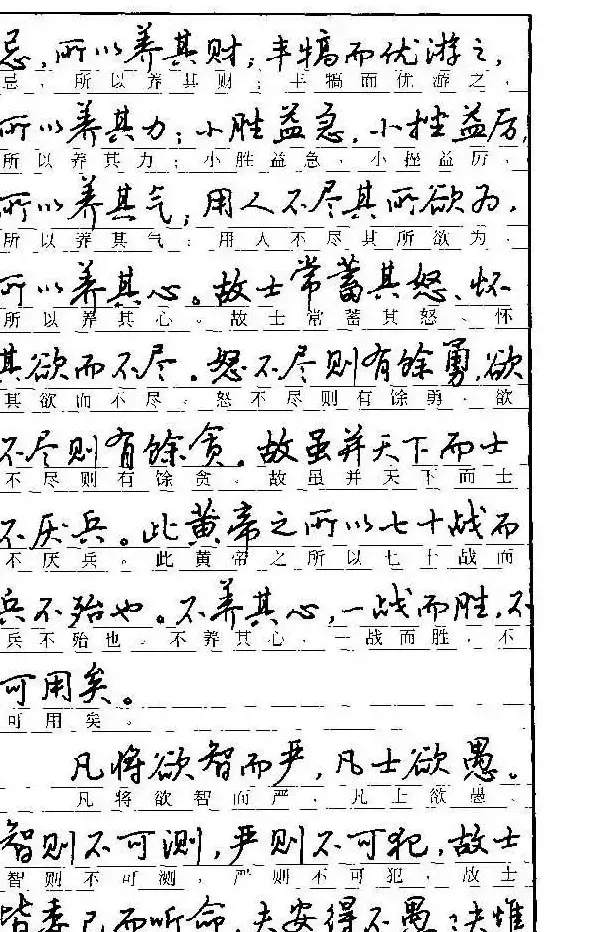 忌,所以养其财;丰犒而优游之,
忌,所以养其财;丰犒而优游之,
所以养其力;小胜益急,小挫益厉,
所以养其力;小胜益急,小挫益厉,
所以养其气;用人不尽其所欲为,
所以养其气;用人不尽其所欲为,
所以养其心。故士常蓄其怒、怀
所以养其心。故士常蓄其怒、怀
其欲而不尽。怒不尽则有馀勇,欲
其欲而不尽。怒不尽则有馀勇,欲
不尽则有馀贪。故虽并天下而士
不尽则有馀贪。故虽并天下而士
不厌兵。此黄帝之所以七十战而
不厌兵。此黄帝之所以七十战而
兵不殆也。不养其心,一战而胜,不
兵不殆也。不养其心,一战而胜,不
可用矣。
可用矣。
凡将欲智而严,凡士欲愚。
凡将欲智而严,凡士欲愚。
智则不可测,严则不可犯,故士
智则不可测,严则不可犯,故士
皆委己而听命,夫安得不愚?夫惟